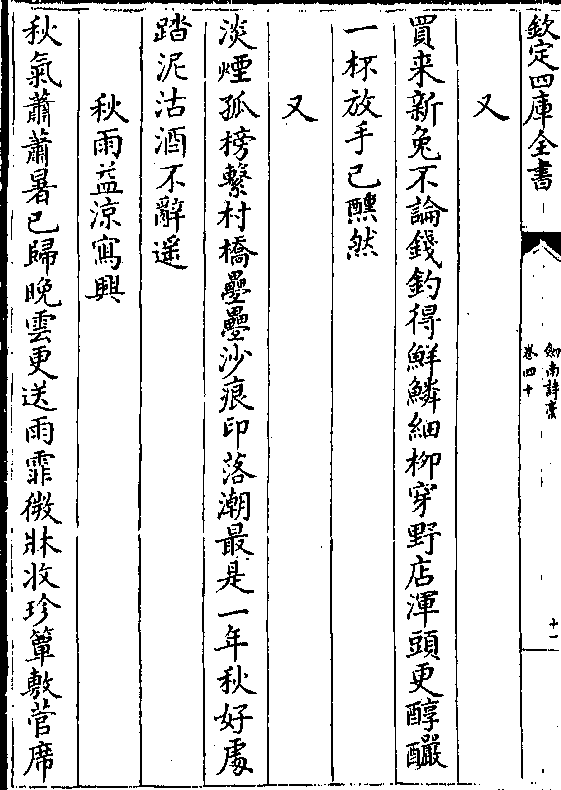 欽定四庫全書
劒南詩藁
卷四十
十一
又
買来新兔不論錢釣得鮮鱗細柳穿野店渾頭更醇釅
一杯放手已醺然
又
淡煙孤榜繫村橋疊疊沙痕印落潮最是一年秋好處
踏泥沽酒不辭遥
秋雨益涼寫興
秋氣蕭蕭暑已歸晩雲更送雨霏微牀收珍簟敷菅席